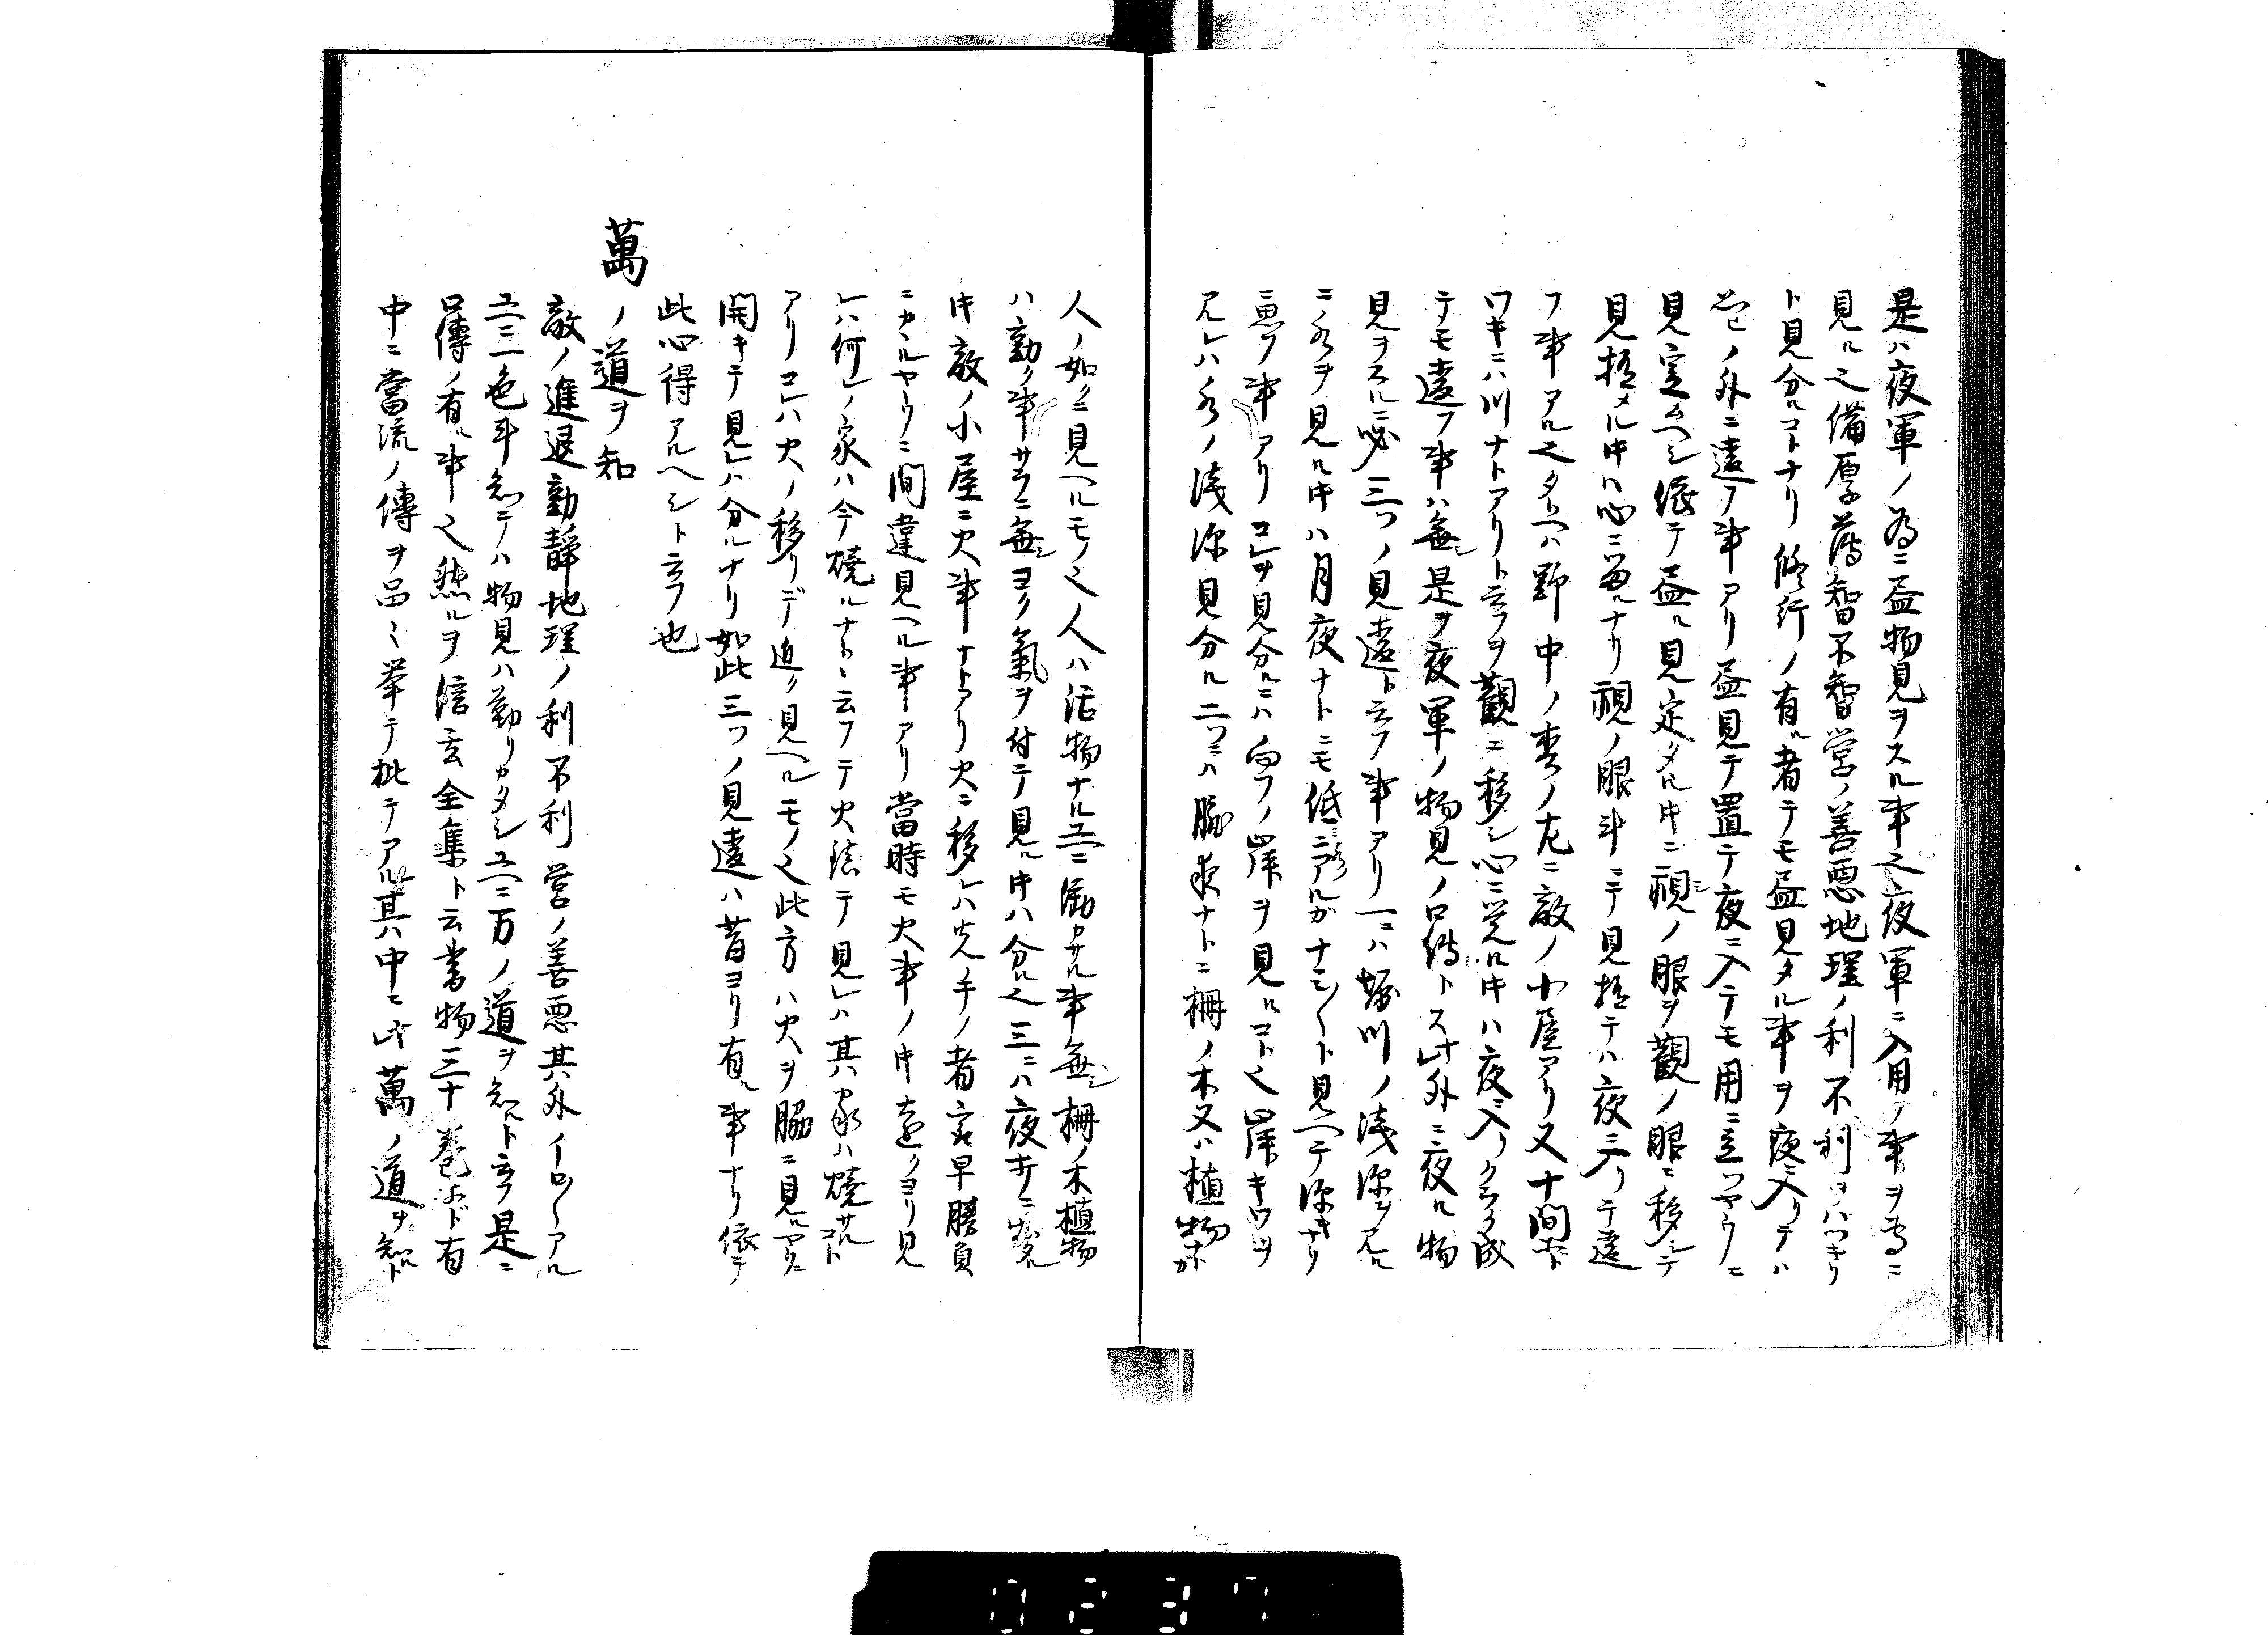 是ハ夜軍ノ為ニ昼物見ヲスル事也夜軍ニ入用ノ事ヲ専ニ
見ル也備厚薄智不智営ノ善悪地理ノ利不利ヲハツキリ
ト見分ルコトナリ修行ノ有ル者テモ昼見タル事ヲ夜ニ入リテハ
ノ外ニ違フ事アリ昼見テ置テ夜ニ入テモ用ニ立ツヤウニ
見定ムヘシ依テ昼ル見定タル時ニ視ノ眼ヲ観ノ眼ニ移シテ
見極メル時ハ心ニ留ルナリ視ノ眼斗ニテ見極テハ夜ニ入リテ違
フ事アル也タトヘハ野中ノ森ノ左ニ敵ノ小屋アリ又十間ホト
ワキニハ川ナトアリト云フヲ観ニ移シ心ニ覚ル時ハ夜ニ入リクラク成
テモ違フ事ハ無シ是ヲ夜軍ノ物見ノ口傳トス此外ニ夜ル物
見ヲスルニ必三ツノ見違ト云フ事アリ一ニハ堀川ノ浅深ナル
ニ水ヲ見ル時ハ月夜ナトニモ低ニアルガナミ〱ト見ヘテ深キナリ
ニ思フ事アリコレヲ見分ルニハ向フノ岸ヲ見ルコト也岸キワヲ
見レハ水ノ浅深見分ル二ツニハ藪表ナトニ柵ノ木又ハ植物ナトガ
人ノ如クニ見ヘルモノ也人ハ活物ナル故ニ動カサル事無シ柵ノ木植物
ハ動ク事サラニ無シヨク氣ヲ付テ見ル時ハ分ル也三ニハ夜討ニ出タル
時敵ノ小屋ニ火事ナトアリ火ニ移レハ先手ノ者言早勝負
ニカヽルヤウニ間違見ヘル事アリ當時モ火事ノ時遠クヨリ見
レハ何レノ家ハ今焼ルナトヽ云フテ火法テ見レハ其家ハ焼サルコト
アリコレハ火ノ移リデ近ク見ヘルモノ也此方ハ火ヲ脇ニ見ルヤウニ
開キテ見レハ分ルナリ如此三ツノ見違ハ昔ヨリ有ル事ナリ依テ
此心得アルヘシト云フ也
萬ノ道ヲ知
敵ノ進退動静地理ノ利不利営ノ善悪其外イロ〱アル
故ニ一色斗知テハ物見ハ勤リカタシ故ニ万ノ道ヲ知ルト云フ是ニ
口傳ノ有ル事也然ルヲ信玄全集ト云書物三十巻ホド有
中ニ當流ノ傳ヲ品々挙テ批テアル其ハ中ニ此萬ノ道ヲ知ルト